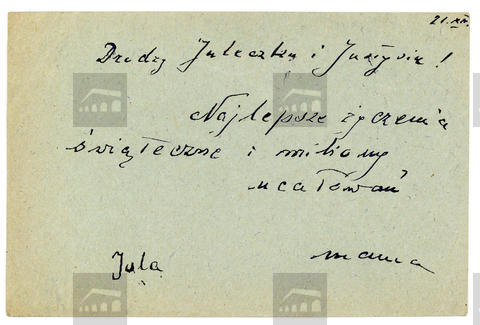 21.XII.
Drodzy Juleczku i Justysiu!
Najlepsze życzenia
świąteczne i miliony
ucałowań
Jula mama